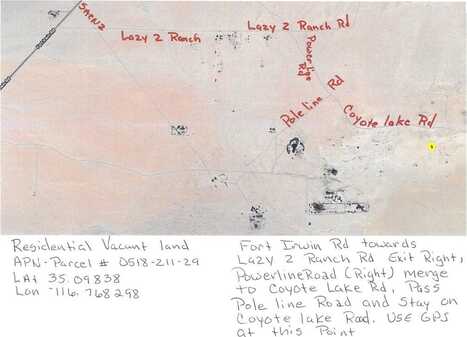 SAENZ
Lazy 2 Ranch
Lazy 2 Ranch Rd
Powerline Rd
Pole line Rd
Coyote lake Rd
Residential Vacant land
APN-Parcel # 0518-211-29
LAt 35.09838
Lon -116.768298
Fort Irwin Rd towards
Lazy 2 Ranch Rd Exit Right,
Powerline Road (Right) merge
to Coyote Lake Rd, Pass
Pole line Road and Stay on
Coyote lake Road. USE GPS
at this Point